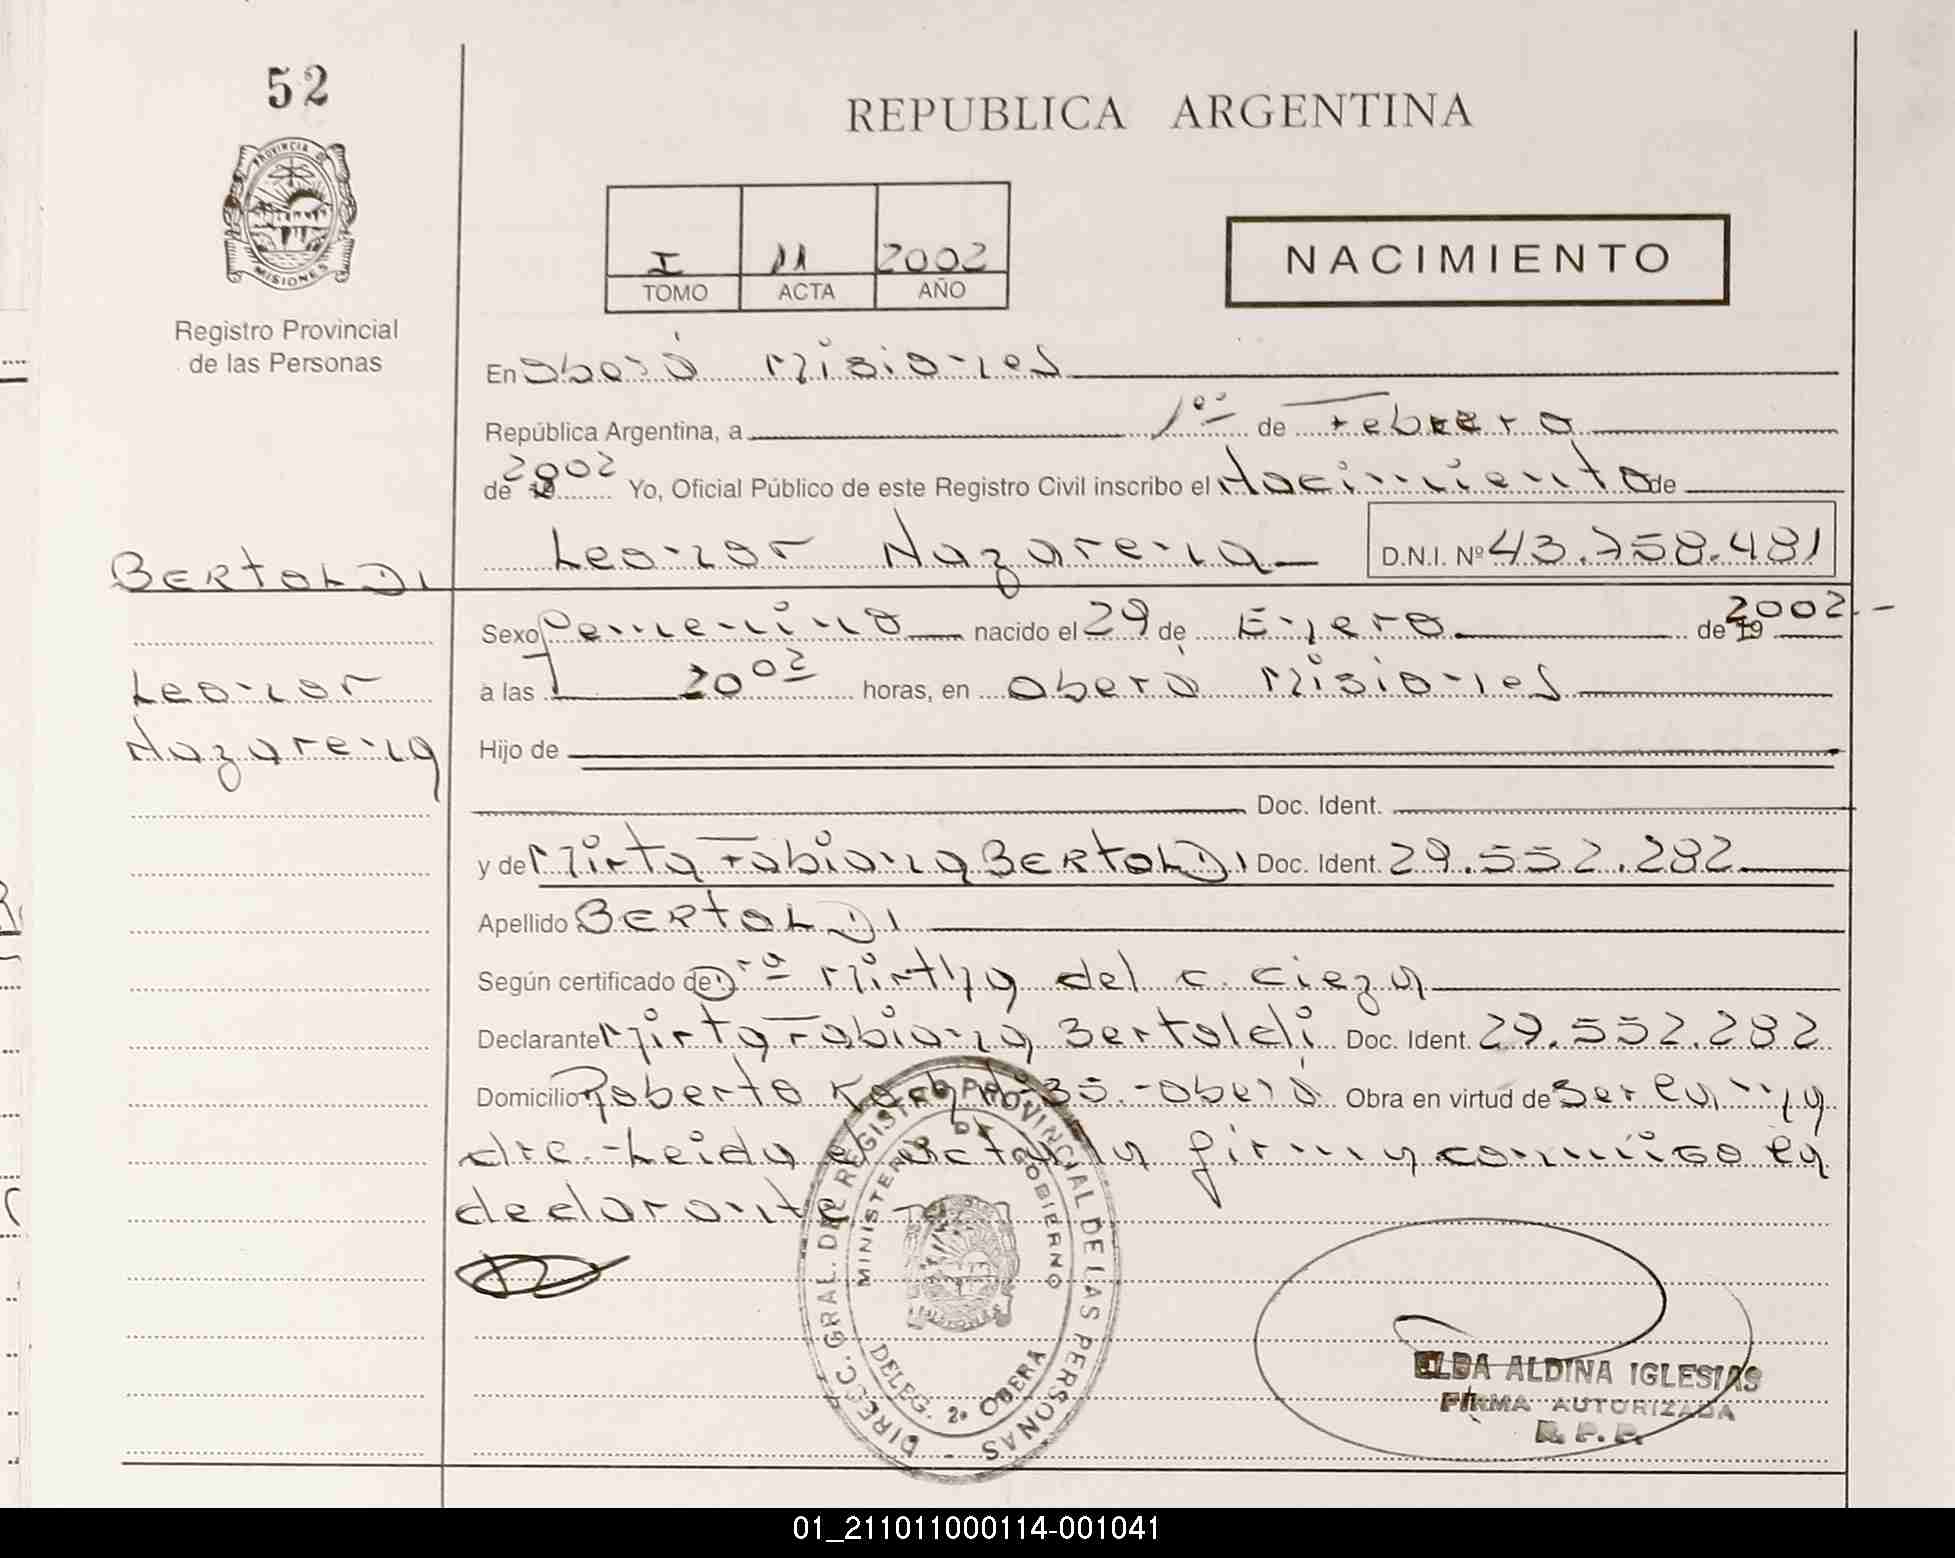 52
REPUBLICA ARGENTINA
PROVINCIA DE
MISIONES
Registro Provincial
de las Personas
I 11 2002
TOMO ACTA AÑO
NACIMIENTO
En Oberá Misiones
República Argentina, a 1º de Febrero
de 2002 Yo, Oficial Público de este Registro Civil inscribo el Nacimiento de
Leonor Nazarena D.N.I. Nº 43.758.481
BERTOLDI
Sexo Femenino nacido el 29 de Enero de 19 2002.-
Leonor
a las 20 02 horas, en Oberá Misiones
Nazarena
Hijo de
Doc. Ident.
y de Mirta Fabiana BERTOLDI Doc. Ident. 29.552.282
Apellido BERTOLDI
Según certificado de Drª Mirtha del C. Cieza
Declarante Mirta Fabiana Bertoldi Doc. Ident. 29.552.282
Domicilio Roberto Koch Nº 35.-Oberá Obra en virtud de ser la ma
dre.-Leida el acta la firma conmigo la
declarante
DIRECC. GRAL. DEL REGISTRO PROVINCIAL DE LAS PERSONAS
MINISTERIO DE GOBIERNO
DELEG. 2ª OBERA
ELBA ALDINA IGLESIAS
FIRMA AUTORIZADA
R. P. P.
01_211011000114-001041